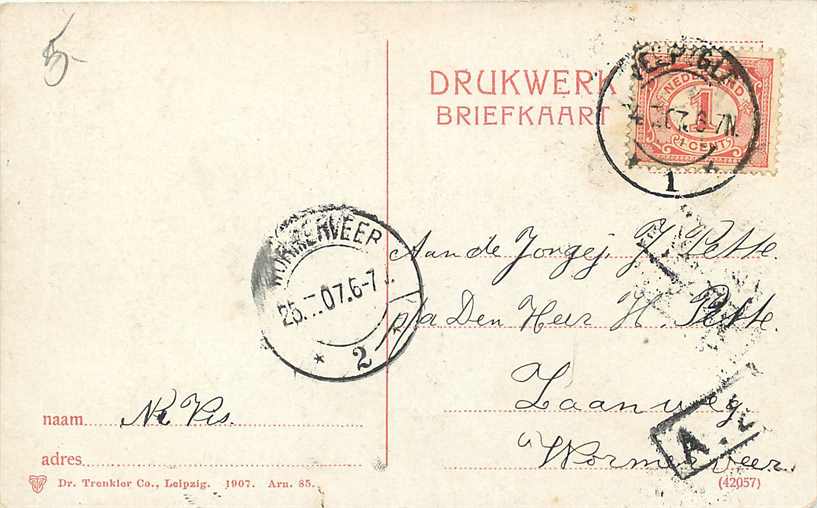 5-
DRUKWERK
BRIEFKAART
NEDERLAND
1
1 CENT
07.6-7N.
1
WORMERVEER
25. 07.6-7
2
Aan de J. Pette.
p/a Den Heer H. Pette.
Zaanweg
Wormerveer.
A.
naam
Vis.
adres
Dr. Trenkler Co., Leipzig. 1907. Arn. 85.
(42057)